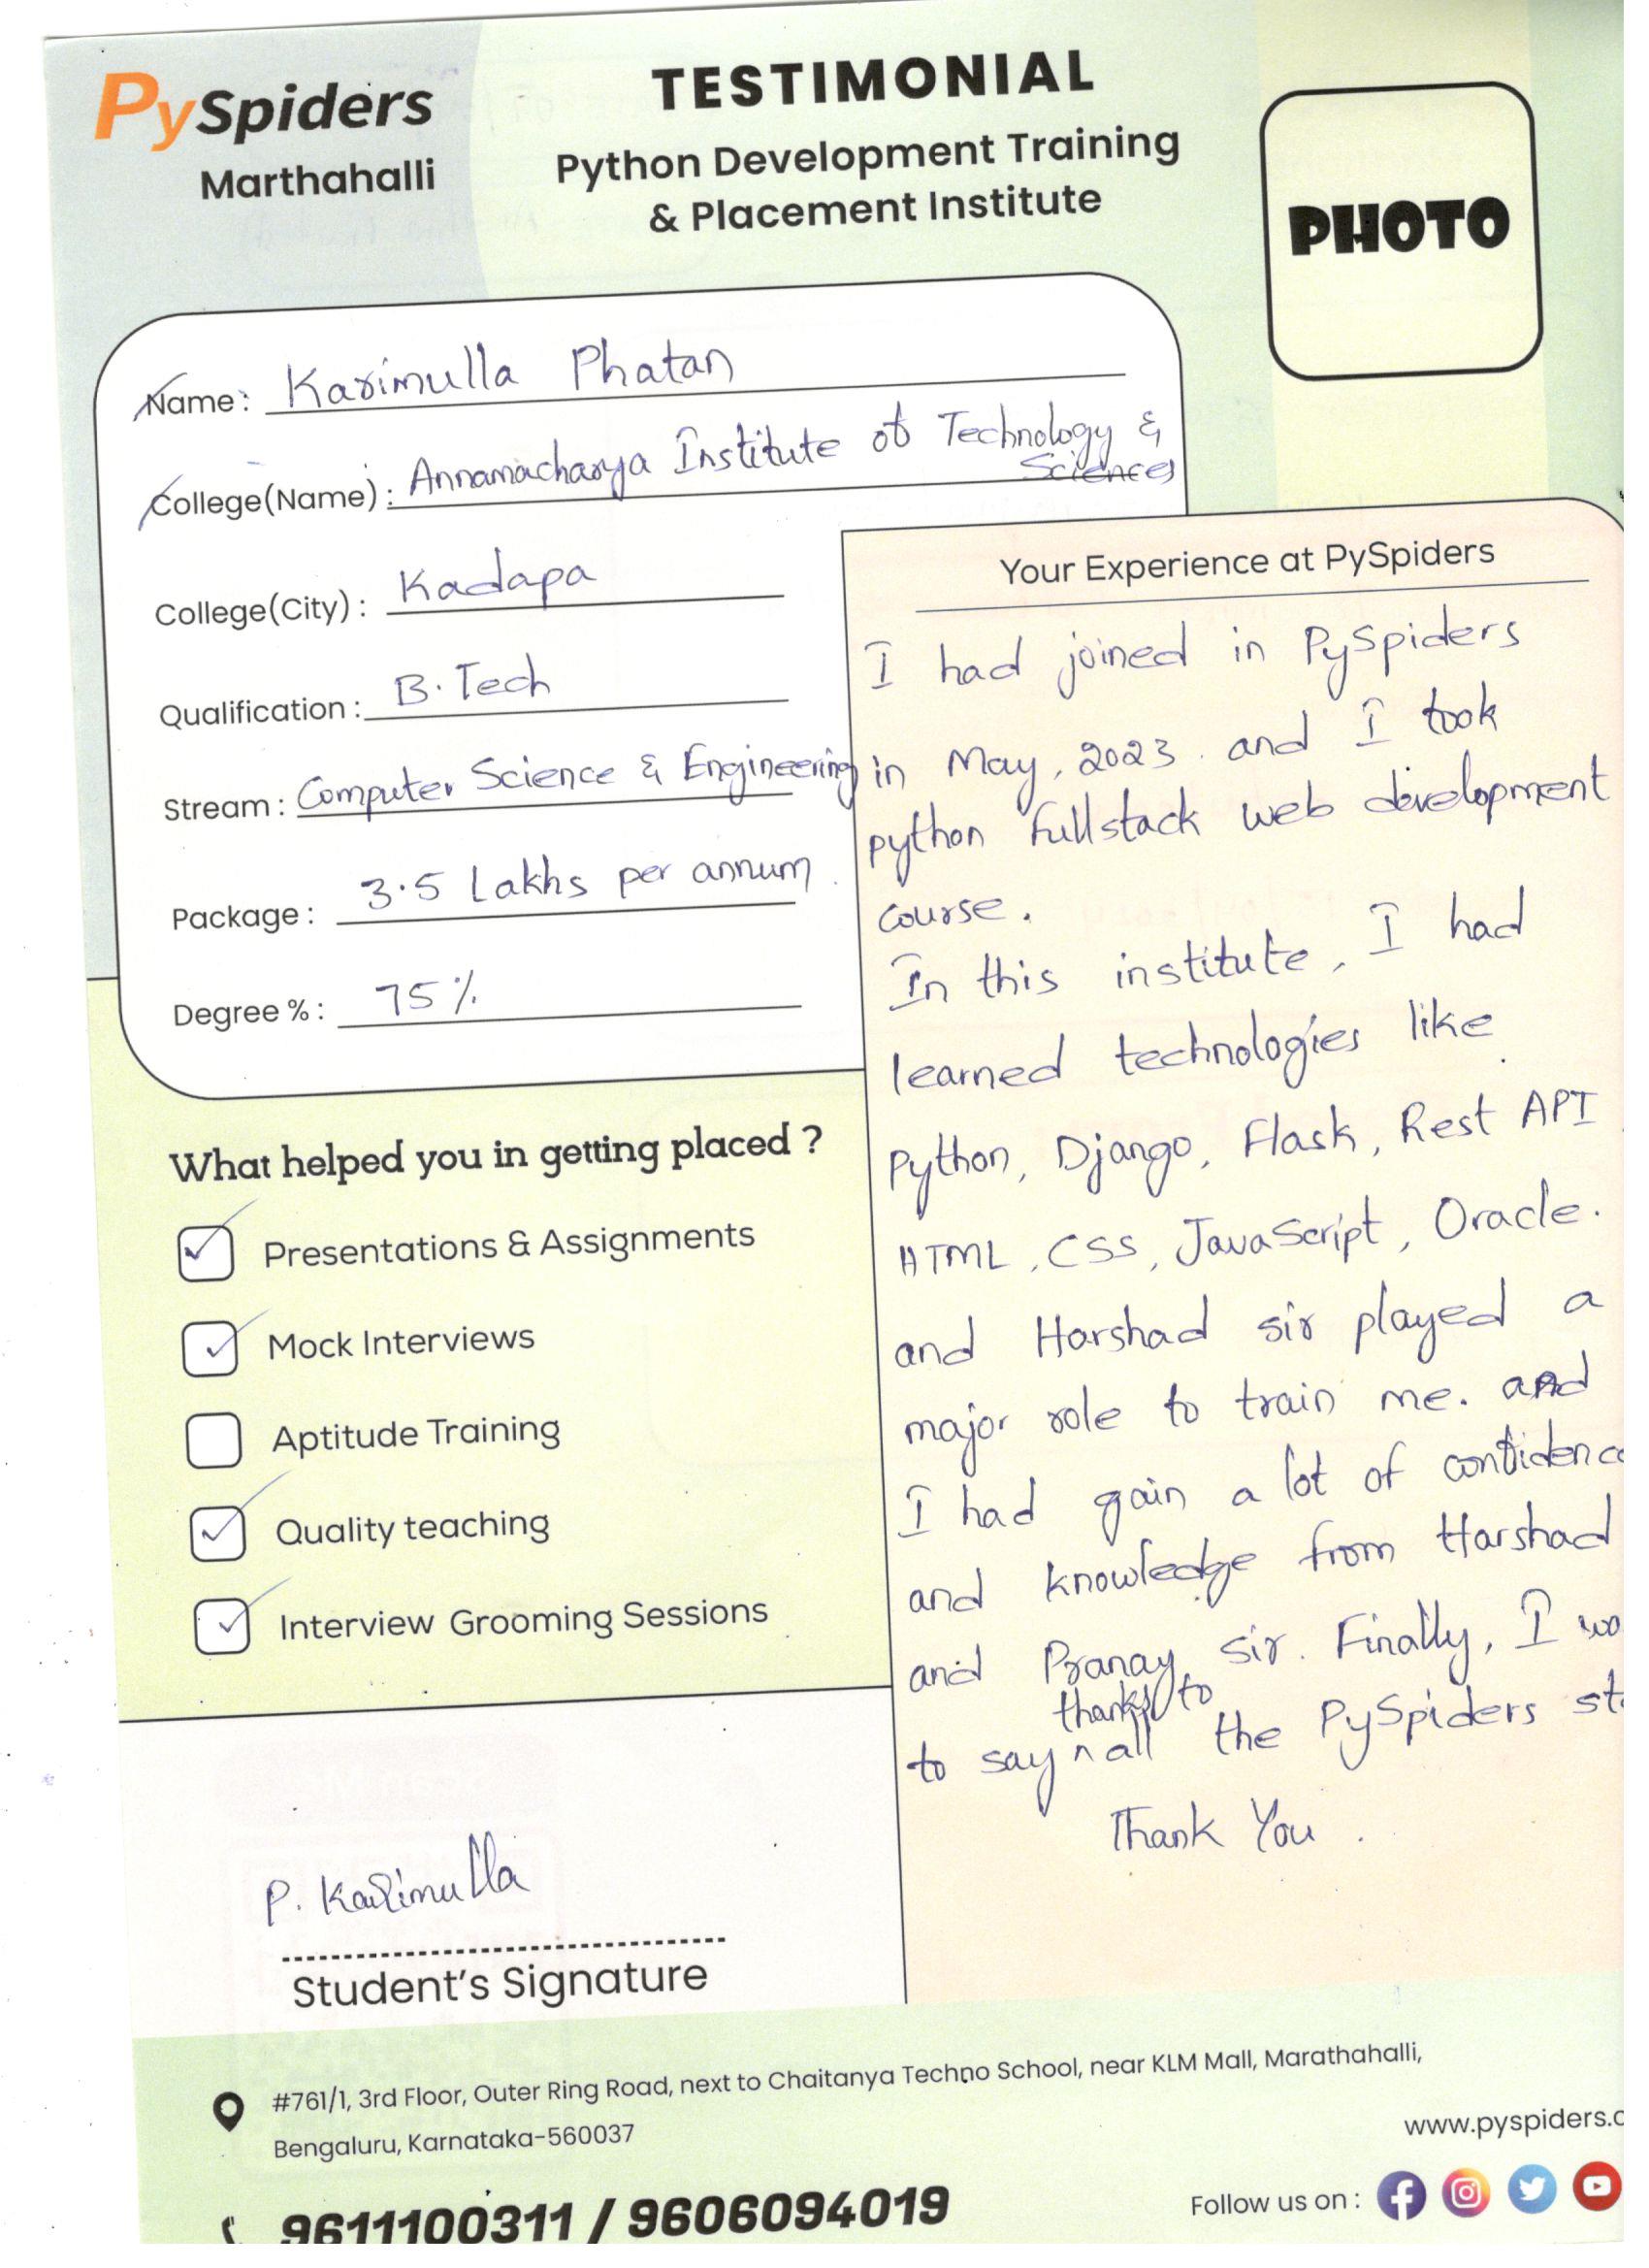 PySpiders
Marthahalli
TESTIMONIAL
Python Development Training
& Placement Institute
PHOTO
Name: Karimulla Phatan
College(Name): Annamacharya Institute of Technology &
Sciences
College(City): Kadapa
Qualification: B.Tech
Stream: Computer Science & Engineering
Package: 3.5 Lakhs per annum.
Degree %: 75%
What helped you in getting placed ?
Presentations & Assignments
Mock Interviews
Aptitude Training
Quality teaching
Interview Grooming Sessions
Your Experience at PySpiders
I had joined in PySpiders
in May, 2023. and I took
python fullstack web development
course.
In this institute, I had
learned technologies like
Python, Django, Flask, Rest API
HTML, CSS, JavaScript, Oracle.
and Harshad sir played a
major role to train me. and
I had gain a lot of confidenc
and knowledge from Harshad
and Pranay sir. Finally, I
thanks to
to say all the PySpiders
Thank You.
P. Karimulla
Student's Signature
#761/1, 3rd Floor, Outer Ring Road, next to Chaitanya Techno School, near KLM Mall, Marathahalli,
Bengaluru, Karnataka-560037
www.pyspiders.c
9611100311 / 9606094019
Follow us on :